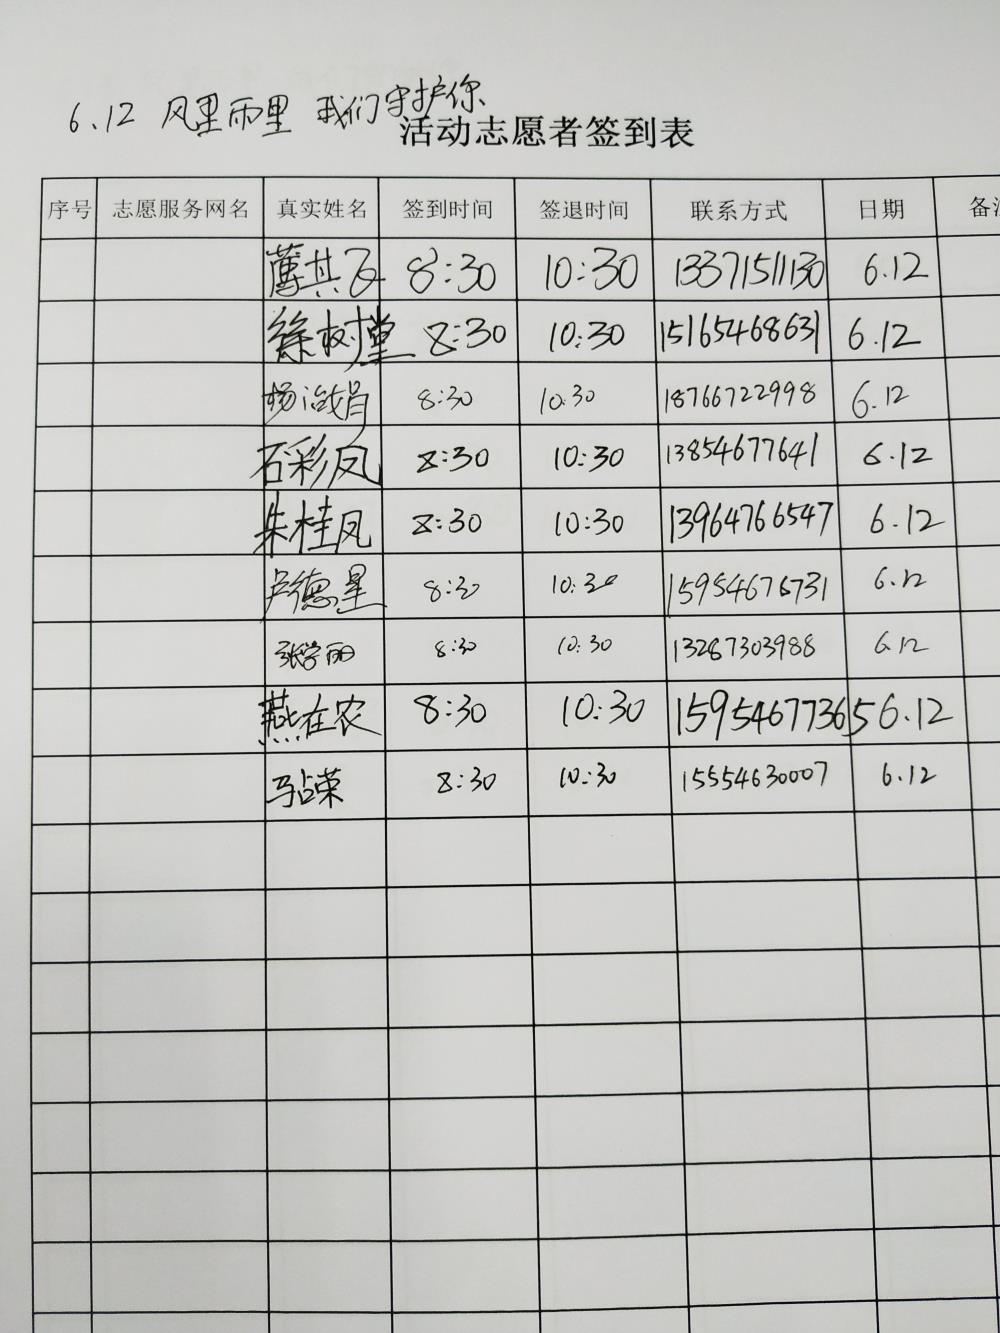 6.12 风里雨里 我们守护你
活动志愿者签到表
序号 志愿服务网名 真实姓名 签到时间 签退时间 联系方式 日期 备注
薄其飞 8:30 10:30 13371511130 6.12
徐树堂 8:30 10:30 15165468631 6.12
杨治娟 8:30 10:30 18766722998 6.12
石彩凤 8:30 10:30 13854677641 6.12
朱桂凤 8:30 10:30 13964766547 6.12
卢德星 8:30 10:30 15954676731 6.12
张学丽 8:30 10:30 13287303988 6.12
燕在农 8:30 10:30 15954677365 6.12
马占荣 8:30 10:30 15554630007 6.12